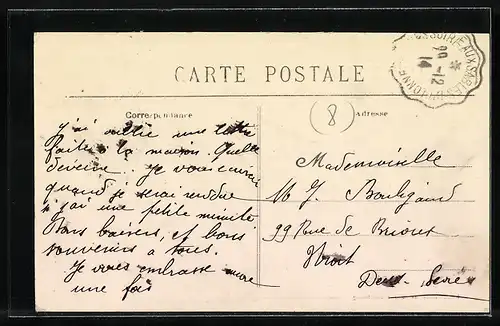 CARTE POSTALE
Correspondance
Adresse
8
29 - 12
14
j'ai oublié une lettre
faite à la maison. Quelle
déveine. Je vous écrirai
quand je serai rendue
si j'ai une petite minute
Bons baisers, et bons
souvenirs à tous.
Je vous embrasse encore
une fois
Mademoiselle
M J. Bouligand
99 Rue de Brioux
Niort
Deux-Sèvres